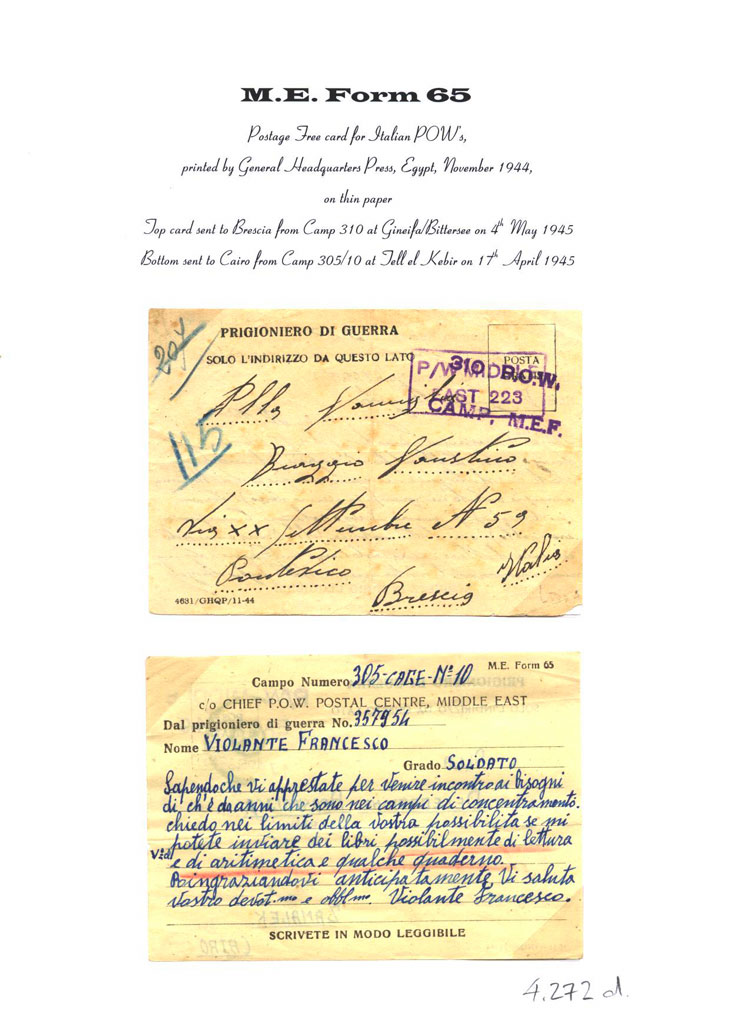 M.E. Form 65
Postage Free card for Italian POW's,
printed by General Headquarters Press, Egypt, November 1944,
on thin paper
Top card sent to Brescia from Camp 310 at Gineifa/Bittersee on 4th May 1945
Bottom sent to Cairo from Camp 305/10 at Tell el Kebir on 17th April 1945
204
PRIGIONIERO DI GUERRA
SOLO L'INDIRIZZO DA QUESTO LATO
POSTA
P/W MIDDLE
EAST 223
310 P.O.W.
CAMP, M.E.F.
115
Alla
Faustino
Via XX Settembre N 59
Pontevico
Brescia
Italia
4631/GHQP/11-44
M.E. Form 65
Campo Numero 305-CAGE-Nº10
c/o CHIEF P.O.W. POSTAL CENTRE, MIDDLE EAST
Dal prigioniero di guerra No. 357954
Nome VIOLANTE FRANCESCO
Grado SOLDATO
Sapendo che vi apprestate per venire incontro ai bisogni
di ch'è da anni che sono nei campi di concentramento.
chiedo nei limiti della vostra possibilita se mi
potete inviare dei libri possibilmente di lettura
e di aritimetica e qualche quaderno.
Raingraziandovi anticipatamente, Vi saluta
Vostro devot.mo e obbl.mo. Violante Francesco.
SCRIVETE IN MODO LEGGIBILE
4.272 d.